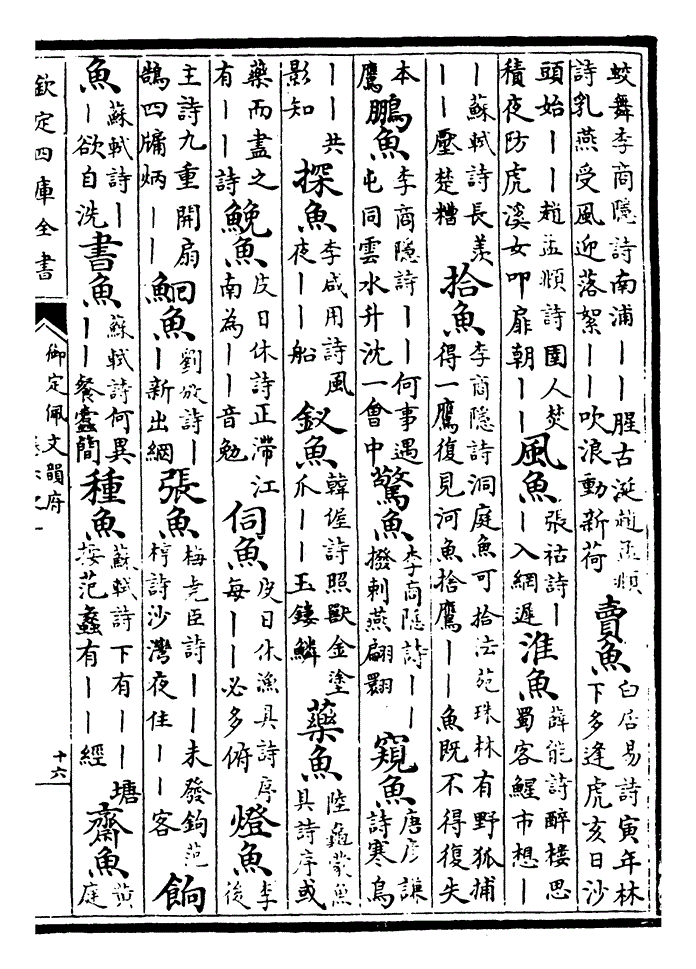 蛟舞李商隱詩南浦丨丨腥古涎趙孟頫
詩乳燕受風迎落絮丨丨吹浪動新荷
賣魚
白居易詩寅年林
下多逢虎亥日沙
頭始丨丨趙孟頫詩園人焚
積夜防虎溪女叩扉朝丨丨
風魚
張祜詩丨
丨入網遲
淮魚
薛能詩醉樓思
蜀客鯹市想丨
丨蘇軾詩長羨
丨丨壓楚糟
拾魚
李商隱詩洞庭魚可拾法苑珠林有野狐捕
得一鷹復見河魚捨鷹丨丨魚既不得復失
本
鷹
鵬魚
李商隱詩丨丨何事遇
屯同雲水升沈一會中
驚魚
李商隱詩丨丨
撥剌燕翩翾
窺魚
唐彥謙
詩寒鳥
丨丨共
影知
探魚
李咸用詩風
夜丨丨船
釵魚
韓偓詩照獸金塗
爪丨丨玉鏤鱗
藥魚
陸龜蒙魚
具詩序或
藥而盡之
有丨丨詩
鮸魚
皮日休詩正滯江
南為丨丨音勉
伺魚
皮日休漁具詩序
每丨丨必多俯
燈魚
李
後
主詩九重開扇
鵠四牖炳丨丨
鮰魚
劉攽詩丨
丨新出網
張魚
梅堯臣詩丨丨未發鉤范
梈詩沙灣夜住丨丨客
餉
魚
蘇軾詩丨
丨欲自洗
書魚
蘇軾詩何異
丨丨餐蠹簡
種魚
蘇軾詩下有丨丨塘
按范蠡有丨丨經
齋魚
黃
庭
欽定四庫全書
御定佩文韻府
十六